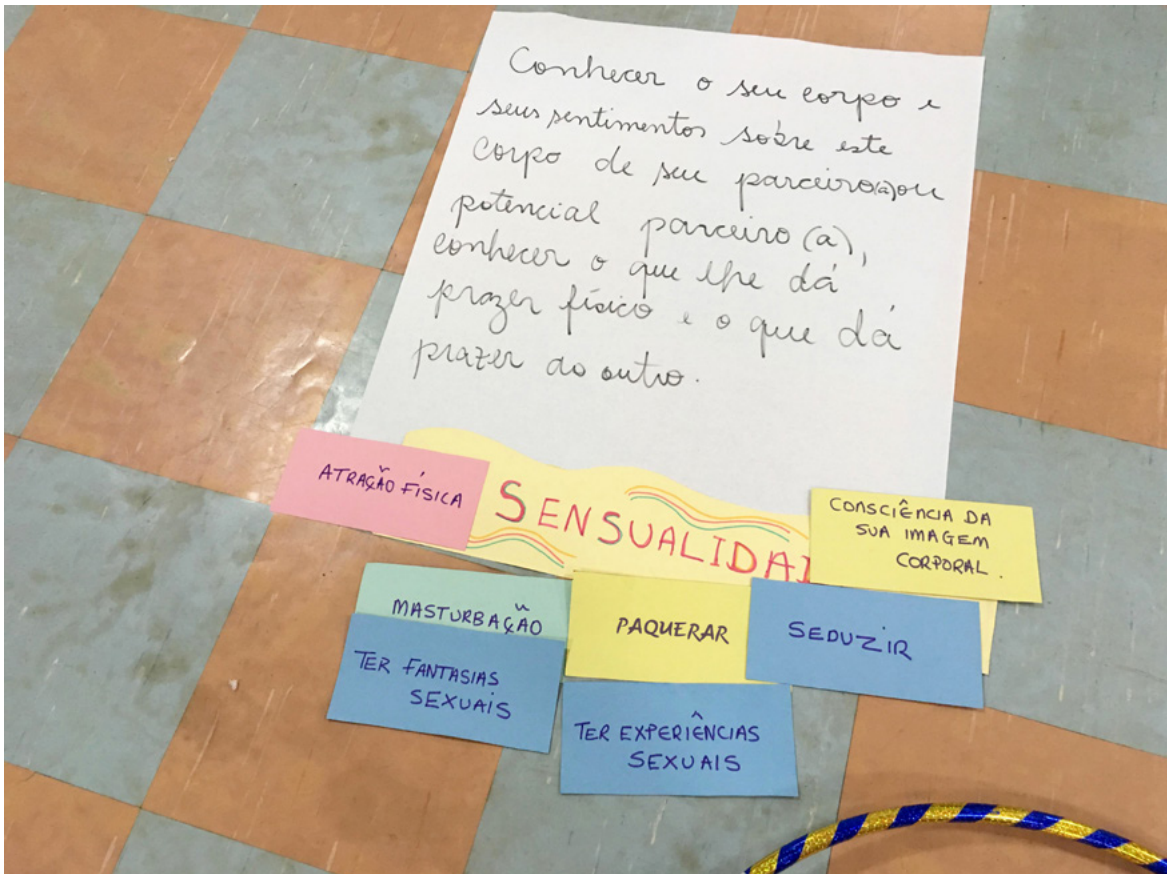 Conhecer o seu corpo e
seus sentimentos sobre este
corpo de seu parceiro(a)ou
potencial parceiro(a),
conhecer o que lhe dá
prazer físico e o que dá
prazer do outro.
ATRAÇÃO FÍSICA
SENSUALIDA
CONSCIÊNCIA DA
SUA IMAGEM
CORPORAL.
MASTURBAÇÃO
PAQUERAR
SEDUZIR
TER FANTASIAS
SEXUAIS
TER EXPERIÊNCIAS
SEXUAIS